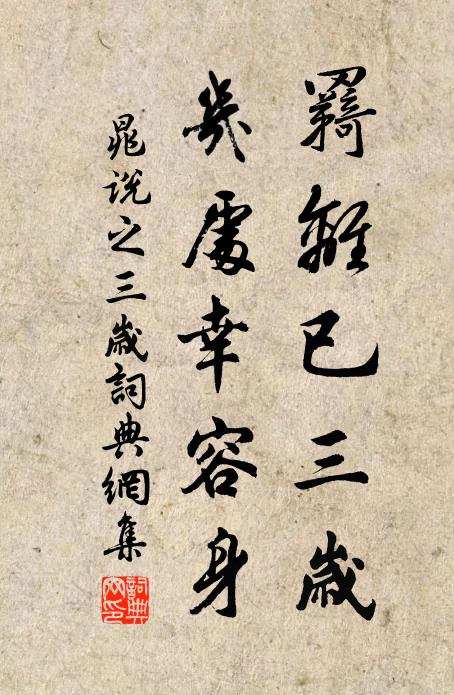 羇離已三歲
幾處幸容身
晁說之三歲詞典網集
詞典網印